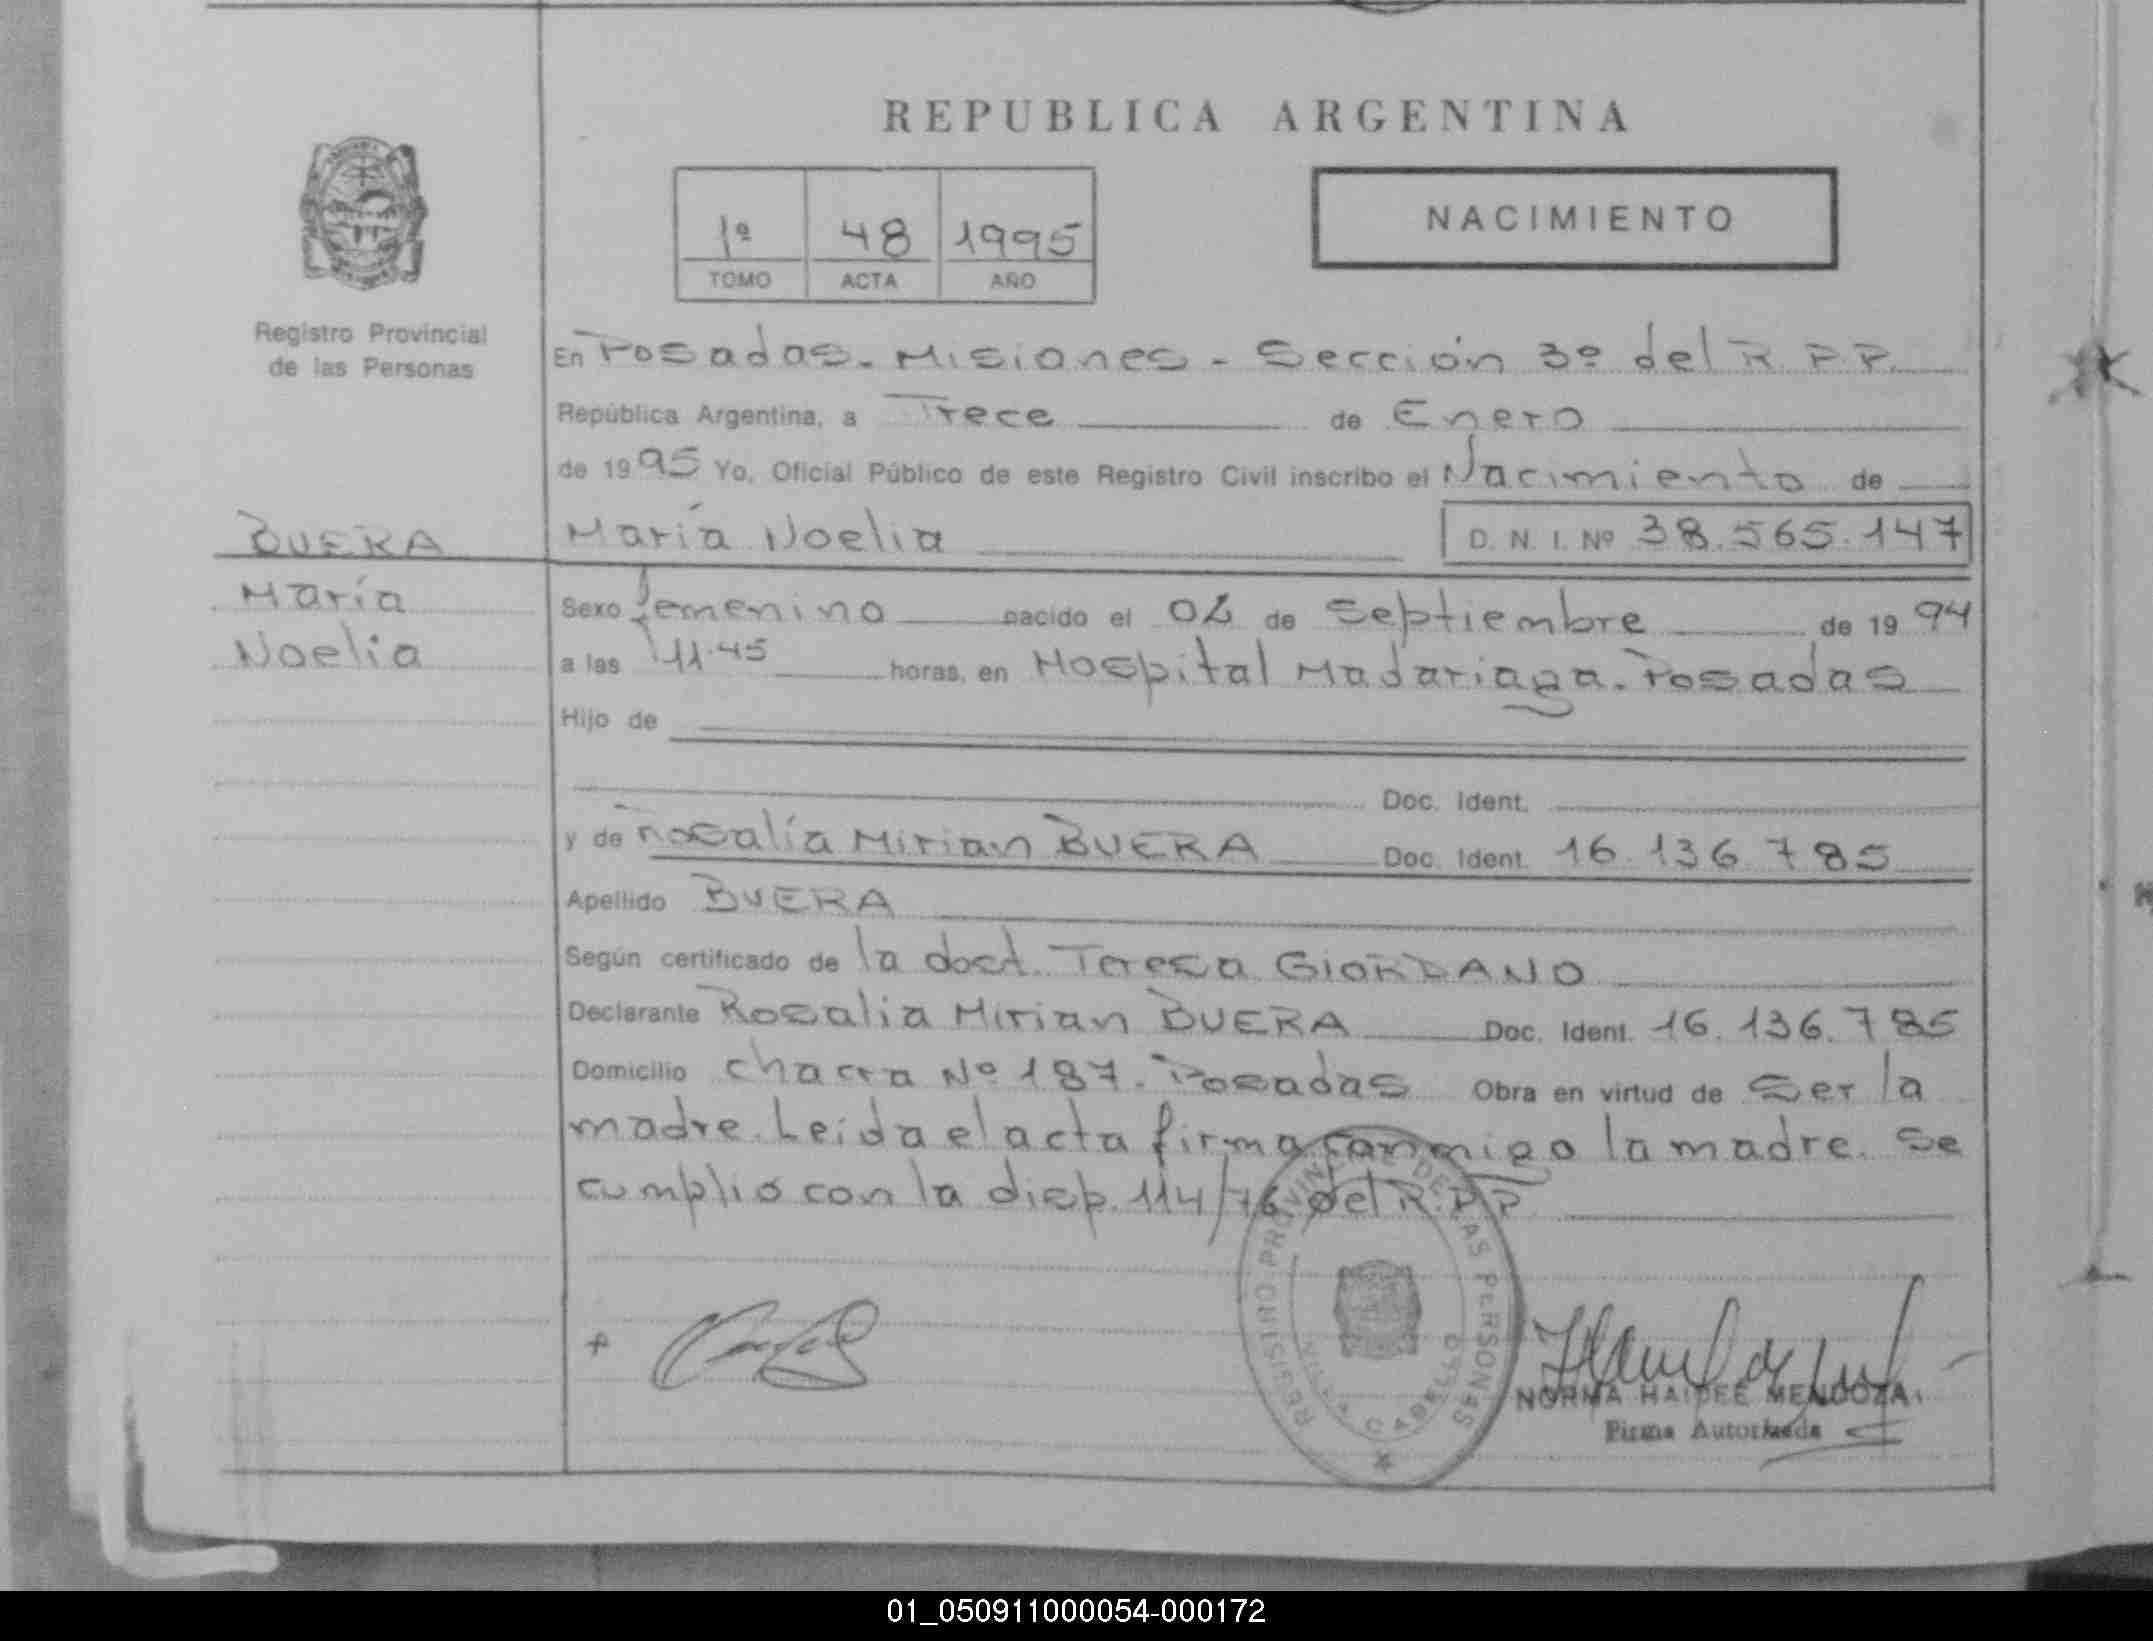 REPUBLICA ARGENTINA
1º 48 1995
TOMO ACTA AÑO
NACIMIENTO
Registro Provincial
de las Personas
En Posadas. Misiones - Sección 3º del R.P.P.
República Argentina, a Trece de Enero
de 1995 Yo, Oficial Público de este Registro Civil inscribo el Nacimiento de
BUERA
María Noelia D. N. I. Nº 38.565.147
María
Noelia
Sexo femenino nacido el 02 de Septiembre de 1994
a las 11.45 horas, en Hospital Madariaga. Posadas
Hijo de
Doc. Ident.
y de Rosalía Mirian BUERA Doc. Ident. 16.136.785
Apellido BUERA
Según certificado de la doct. Teresa GIORDANO
Declarante Rosalia Mirian BUERA Doc. Ident. 16.136.785
Domicilio chacra Nº 187. Posadas Obra en virtud de Ser la
madre. Leída el acta firma conmigo la madre. Se
cumplió con la disp. 114/76 del R.P.P
REGISTRO PROVINCIAL DE LAS PERSONAS
VILLA CABELLO
NORMA HAIDEE MENDOZA
Firma Autorizada
01_050911000054-000172